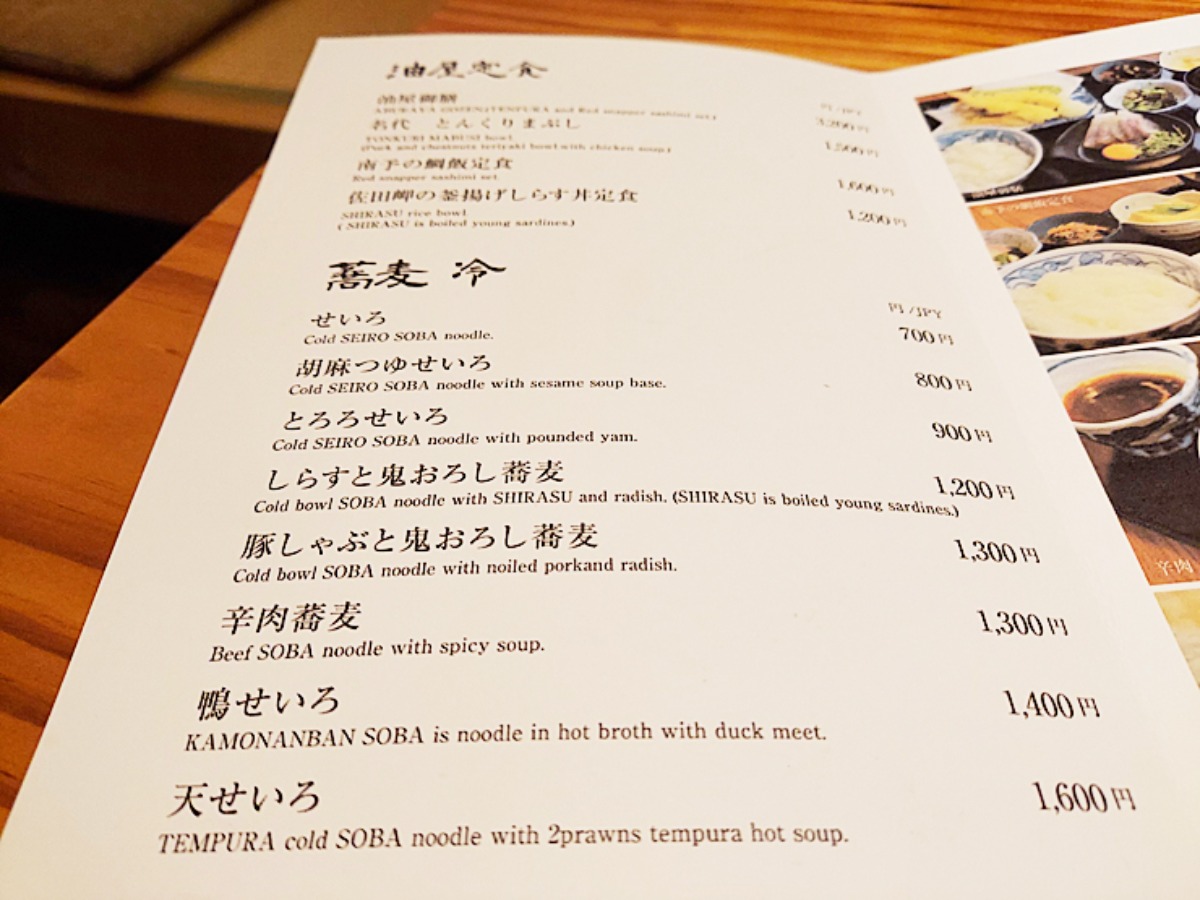 油屋定食
油屋御膳
ABURAYA GOZEN(TENPURA and Red snapper sashimi set)
円/JPY
3,200円
名代 とんくりまぶし
TONKURI MABUSI bowl
(Pork and chestnuts teriyaki bowl with chicken soup)
1,500円
南予の鯛飯定食
Red snapper sashimi set
1,600円
佐田岬の釜揚げしらす丼定食
SHIRASU rice bowl
( SHIRASU is boiled young sardines.)
1,200円
蕎麦 冷
円/JPY
せいろ
Cold SEIRO SOBA noodle.
700円
胡麻つゆせいろ
Cold SEIRO SOBA noodle with sesame soup base.
800円
とろろせいろ
Cold SEIRO SOBA noodle with pounded yam.
900円
しらすと鬼おろし蕎麦
Cold bowl SOBA noodle with SHIRASU and radish. (SHIRASU is boiled young sardines.)
1,200円
豚しゃぶと鬼おろし蕎麦
Cold bowl SOBA noodle with noiled porkand radish.
1,300円
辛肉蕎麦
Beef SOBA noodle with spicy soup.
1,300円
鴨せいろ
KAMONANBAN SOBA is noodle in hot broth with duck meet.
1,400円
天せいろ
TEMPURA cold SOBA noodle with 2prawns tempura hot soup.
1,600円
南予の鯛飯定食
辛肉